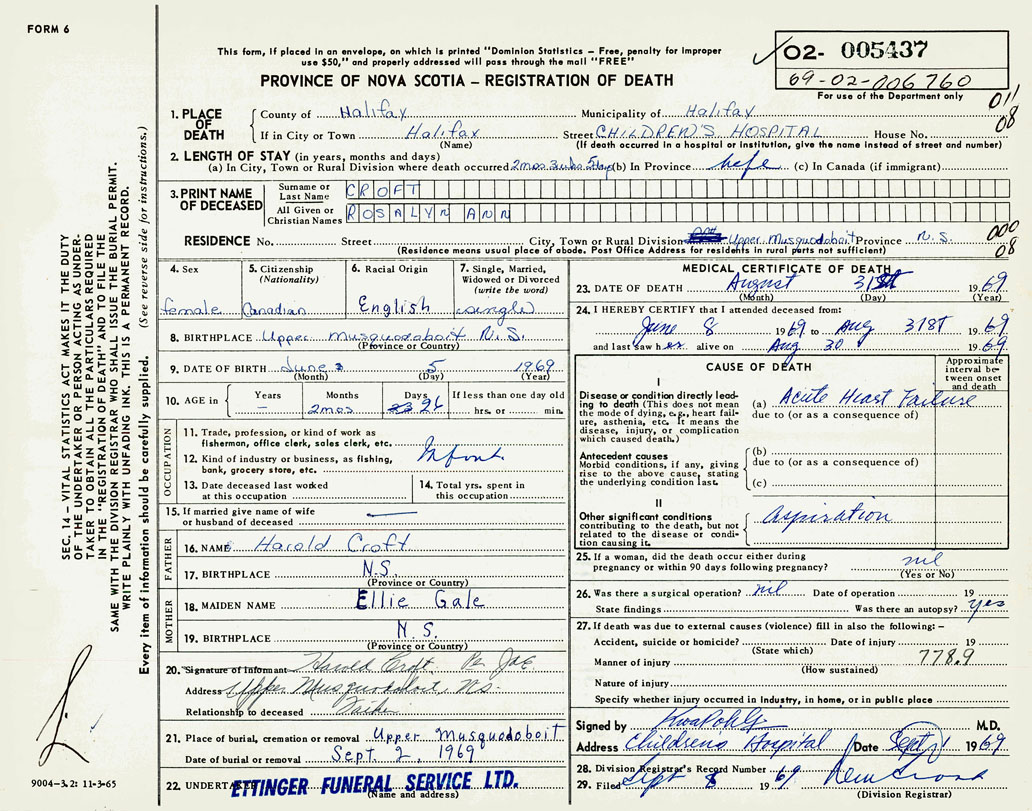 FORM 6
This form, if placed in an envelope, on which is printed "Dominion Statistics – Free, penalty for improper
use $50," and properly addressed will pass through the mail "FREE"
PROVINCE OF NOVA SCOTIA – REGISTRATION OF DEATH
02- 005437
69-02-006760
For use of the Department only
011
08
1. PLACE OF DEATH
County of Halifax Municipality of Halifax
If in City or Town Halifax Street CHILDREN'S HOSPITAL House No.
(Name) (If death occurred in a hospital or institution, give the name instead of street and number)
2. LENGTH OF STAY (in years, months and days)
(a) In City, Town or Rural Division where death occurred 2mos 3wks 5days (b) In Province life (c) In Canada (if immigrant)
3. PRINT NAME OF DECEASED
Surname or Last Name CROFT
All Given or Christian Names ROSALYN ANN
RESIDENCE No. Street City, Town or Rural Division Upper Musquodoboit Province N.S.
(Residence means usual place of abode. Post Office Address for residents in rural parts not sufficient)
000
08
4. Sex female
5. Citizenship (Nationality) Canadian
6. Racial Origin English
7. Single, Married, Widowed or Divorced (write the word) single
8. BIRTHPLACE Upper Musquodoboit N.S.
(Province or Country)
9. DATE OF BIRTH June 5 1969
(Month) (Day) (Year)
10. AGE in Years – Months 2mos Days 26 If less than one day old hrs. or min.
OCCUPATION
11. Trade, profession, or kind of work as fisherman, office clerk, sales clerk, etc.
12. Kind of industry or business, as fishing, bank, grocery store, etc. Infant
13. Date deceased last worked at this occupation
14. Total yrs. spent in this occupation
15. If married give name of wife or husband of deceased —
FATHER
16. NAME Harold Croft
17. BIRTHPLACE N.S.
(Province or Country)
MOTHER
18. MAIDEN NAME Ellie Gale
19. BIRTHPLACE N.S.
(Province or Country)
20. Signature of informant Harold Croft Per
Address Upper Musquodoboit, NS.
Relationship to deceased
21. Place of burial, cremation or removal Upper Musquodoboit
Date of burial or removal Sept. 2, 1969
22. UNDERTAKER ETTINGER FUNERAL SERVICE LTD.
(Name and address)
MEDICAL CERTIFICATE OF DEATH
23. DATE OF DEATH August 31st 1969
(Month) (Day) (Year)
24. I HEREBY CERTIFY that I attended deceased from:
June 8 1969 to Aug 31st 1969
and last saw her alive on Aug 30 1969
CAUSE OF DEATH
Approximate interval between onset and death
I
Disease or condition directly leading to death (This does not mean the mode of dying, e.g., heart failure, asthenia, etc. It means the disease, injury, or complication which caused death.)
(a) Acute Heart Failure
due to (or as a consequence of)
Antecedent causes
Morbid conditions, if any, giving rise to the above cause, stating the underlying condition last.
(b)
due to (or as a consequence of)
(c)
II
Other significant conditions contributing to the death, but not related to the disease or condition causing it.
Aspiration
25. If a woman, did the death occur either during pregnancy or within 90 days following pregnancy? nil
(Yes or No)
26. Was there a surgical operation? nil Date of operation 19
State findings Was there an autopsy? yes
27. If death was due to external causes (violence) fill in also the following: –
Accident, suicide or homicide? Date of injury 19
(State which)
Manner of injury 778.9
(How sustained)
Nature of injury
Specify whether injury occurred in industry, in home, or in public place
Signed by M.D.
Address Children's Hospital Date Sept 1 1969
28. Division Registrar's Record Number
29. Filed Sept 8 1969
(Division Registrar)
SEC. 14 – VITAL STATISTICS ACT MAKES IT THE DUTY
OF THE UNDERTAKER OR PERSON ACTING AS UNDER-
TAKER TO OBTAIN ALL THE PARTICULARS REQUIRED
IN THE "REGISTRATION OF DEATH" AND TO FILE THE
SAME WITH THE DIVISION REGISTRAR WHO SHALL ISSUE THE BURIAL PERMIT.
WRITE PLAINLY WITH UNFADING INK. THIS IS A PERMANENT RECORD.
Every item of information should be carefully supplied. (See reverse side for instructions.)
9004–3.2: 11-3-65